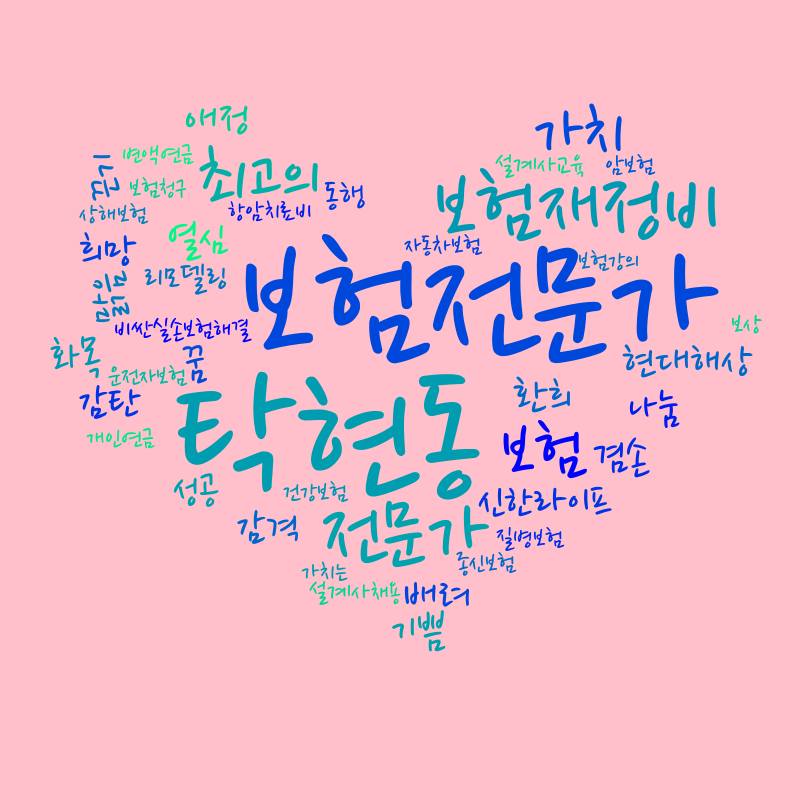 애정
가치
나눔
변액연금
최고의
설계사교육
암보험
보험청구
동행
보험재정비
상해보험
항암치료비
희망
열심
자동차보험
보험강의
리모델링
보험전문가
비싼실손보험해결
보상
화목
꿈
현대해상
운전자보험
감탄
탁현동
환희
개인연금
보험
겸손
성공
건강보험
신한라이프
감격
전문가
질병보험
가치는
종신보험
설계사채용
배려
기쁨